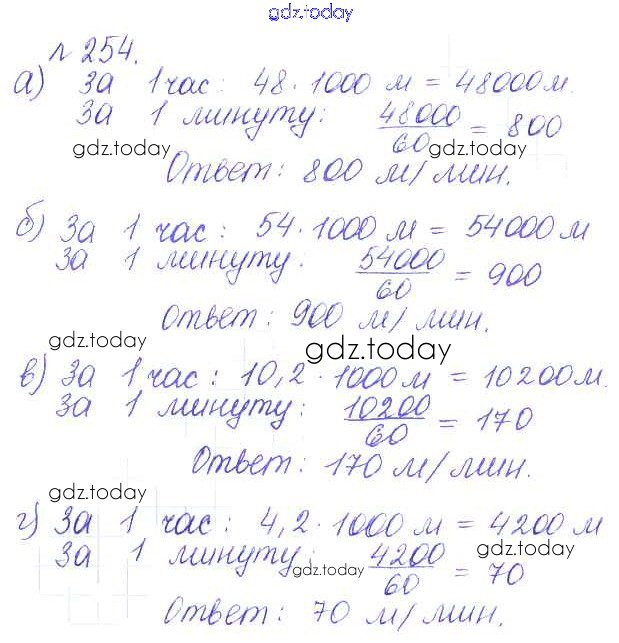 gdz.today
№ 254.
а) За 1 час: 48·1000 м = 48000 м.
За 1 минуту: 48000/60 = 800
gdz.today gdz.today
Ответ: 800 м/мин.
б) За 1 час: 54·1000 м = 54000 м
За 1 минуту: 54000/60 = 900
Ответ: 900 м/мин.
gdz.today gdz.today
в) За 1 час: 10,2·1000 м = 10200 м.
За 1 минуту: 10200/60 = 170
Ответ: 170 м/мин.
gdz.today
г) За 1 час: 4,2·1000 м = 4200 м
За 1 минуту: 4200/60 = 70
gdz.today gdz.today
Ответ: 70 м/мин.